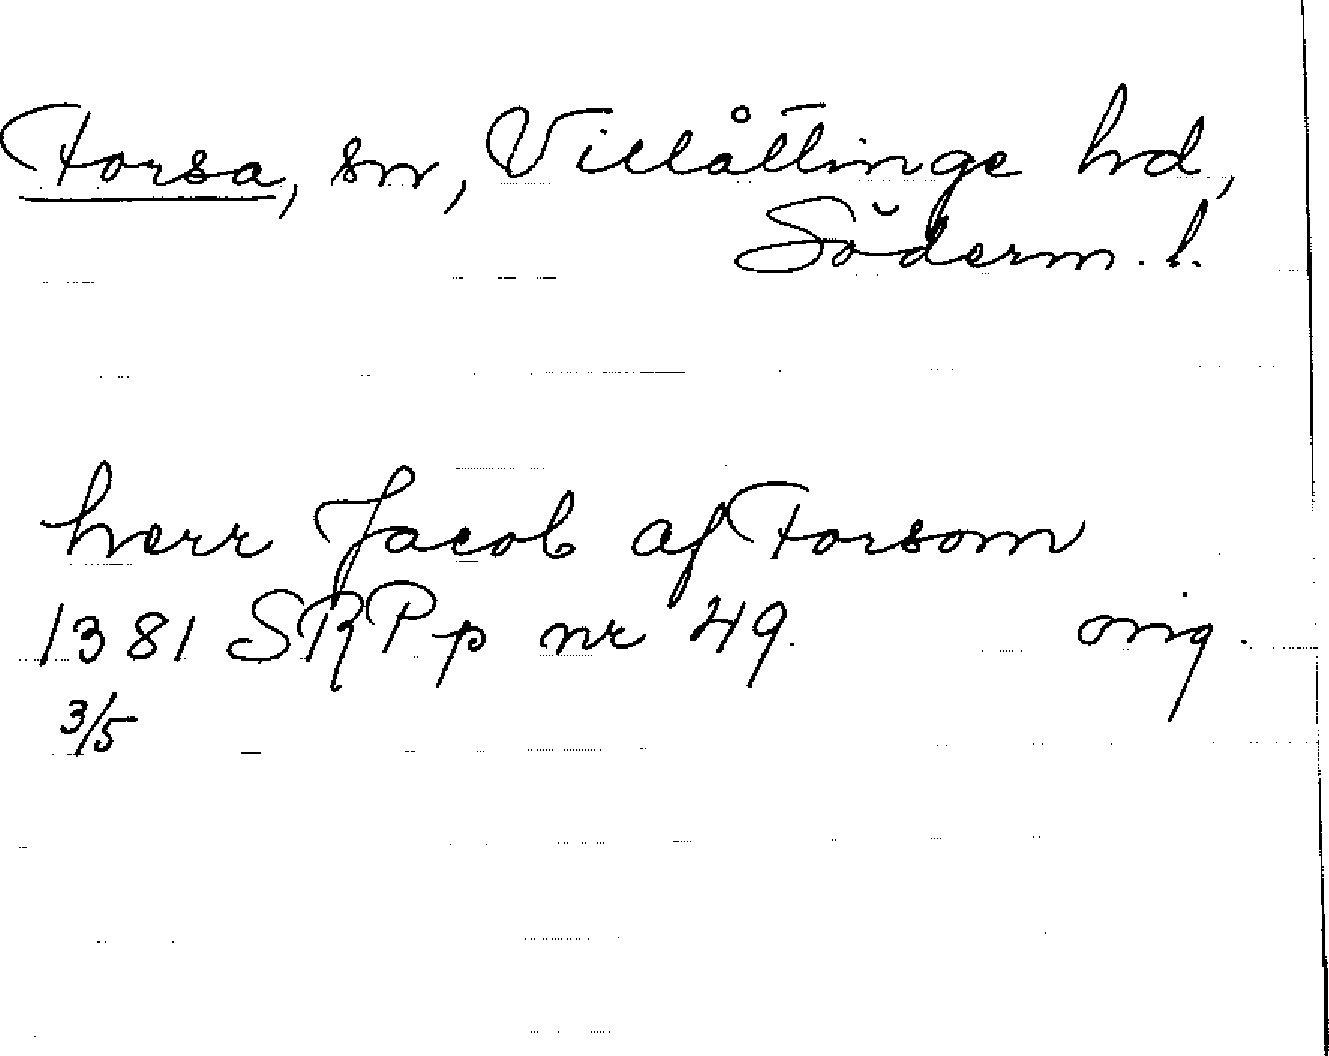 Forsa, sn, Villåttinge hd,
Söderm. l.
herr Jacob af Forsom
1381 SRPp nr 49. orig.
3/5